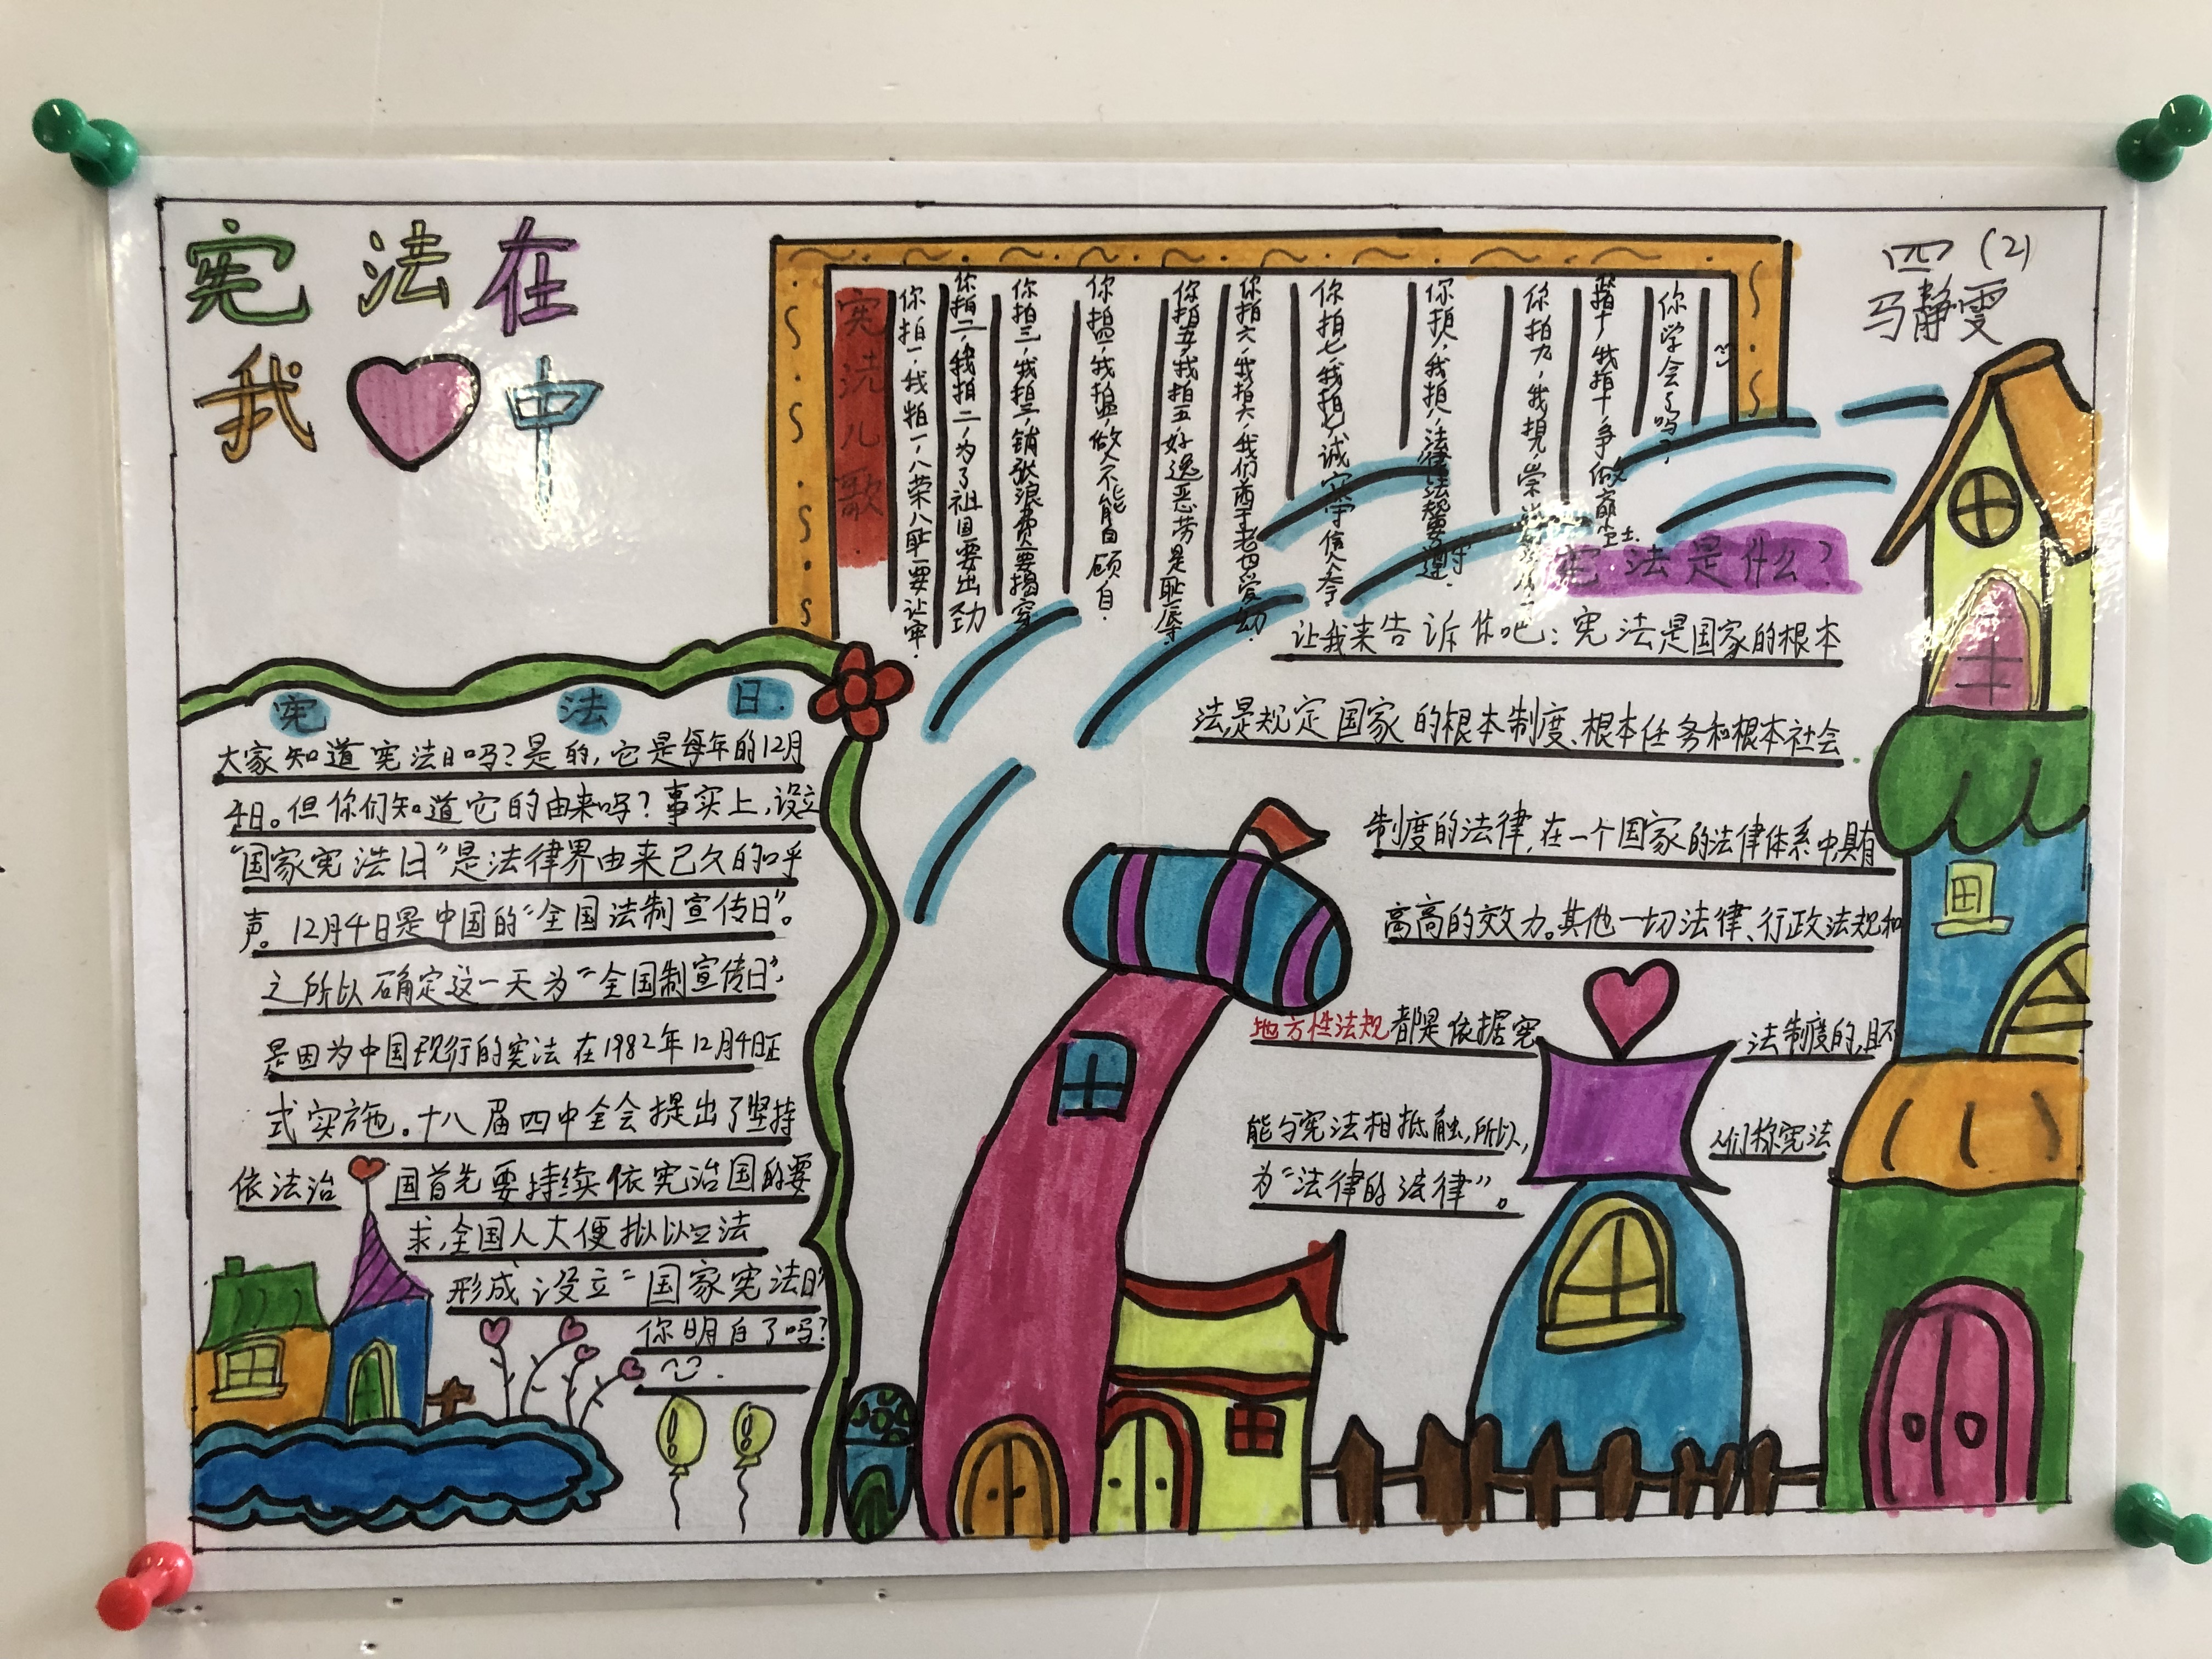 宪法在
我 中
四(2)
马静雯
宪法儿歌
你拍一,我拍一,八荣八耻要让牢.
你拍二,我拍二,为了祖国要出劲
你拍三,我拍三,铺张浪费要揭穿
你拍四,我拍四,做人不能自顾自.
你拍五,我拍五,好逸恶劳是耻辱
你拍六,我拍六,我们尊老也爱幼
你拍七,我拍七,诚实守信人人夸
你拍八,我拍八,法律法规要遵守.
你拍九,我拍九,崇尚
你拍十,我拍十,争做
你学会了吗?
宪法日.
大家知道宪法日吗?是的,它是每年的12月
4日。但你们知道它的由来吗?事实上,设立
"国家宪法日"是法律界由来已久的呼
声。12月4日是中国的"全国法制宣传日"。
之所以确定这一天为"全国制宣传日",
是因为中国现行的宪法在1982年12月4日正
式实施。十八届四中全会提出了坚持
依法治国首先要持续依宪治国的要
求,全国人大便拟以立法
形成设立"国家宪法日"
你明白了吗?
宪法是什么?
让我来告诉你吧:宪法是国家的根本
法,是规定国家的根本制度、根本任务和根本社会
制度的法律,在一个国家的法律体系中具有
高高的效力。其他一切法律、行政法规和
地方性法规都是依据宪法制度的,且不
能与宪法相抵触,所以,人们称宪法
为"法律的法律"。